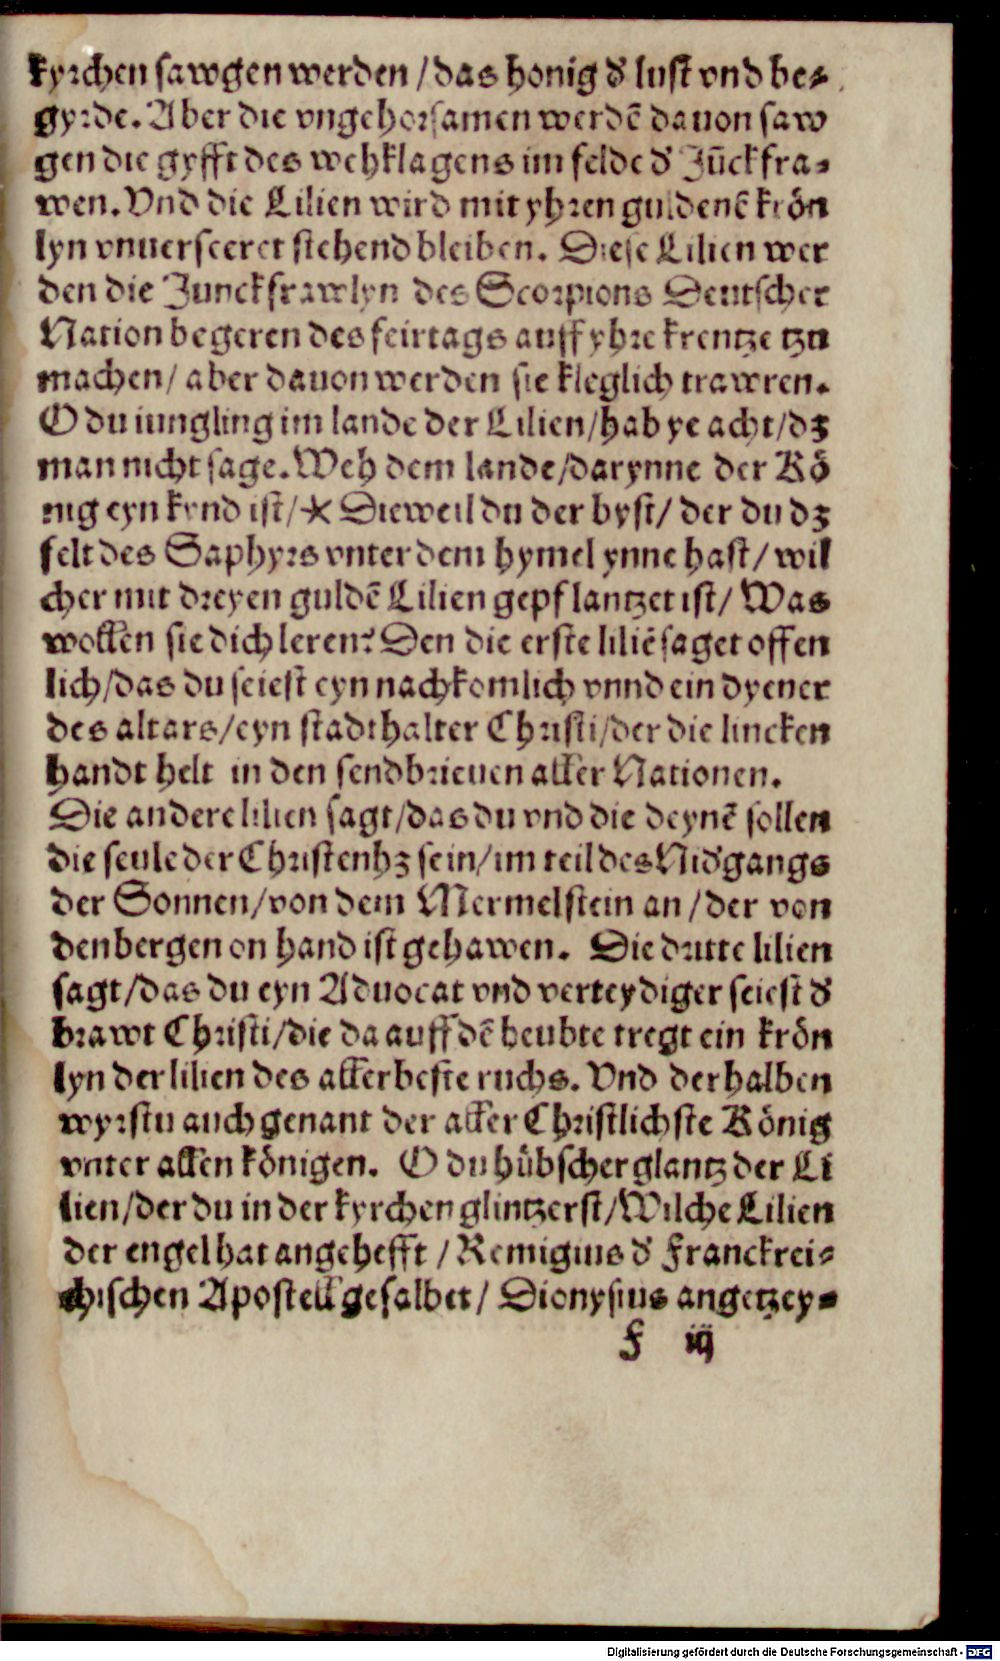 kyrchen sawgen werden / das honig d̕ lust vnd be⸗
gyrde. Aber die vngehorsamen werdē dauon saw
gen die gyfft des wehklagens im felde d̕ Jūckfra⸗
wen. Vnd die Lilien wird mit yhren guldenē krön
lyn vnuerseeret stehend bleiben. Diese Lilien wer
den die Junckfrawlyn des Scorpions Deutscher
Nation begeren des feirtags auff yhre krentze tzu
machen / aber dauon werden sie kleglich trawren.
O du iungling im lande der Lilien / hab ye acht / dz
man nicht sage. Weh dem lande / darynne der Kö
nig eyn kynd ist / * Dieweil du der byst / der du dz
felt des Saphyrs vnter dem hymel ynne hast / wil
cher mit dreyen guldē Lilien gepflantzet ist / Was
wollen sie dich leren? Den die erste liliē saget offen
lich / das du seiest eyn nachkomlich vnnd ein dyener
des altars / eyn stadthalter Christi / der die lincken
handt helt in den sendbrieuen aller Nationen.
Die andere lilien sagt / das du vnd die deynē sollen
die seule der Christenhz sein / im teil des Nid̕gangs
der Sonnen / von dem Mermelstein an / der von
den bergen on hand ist gehawen. Die dritte lilien
sagt / das du eyn Aduocat vnd verteydiger seiest d̕
brawt Christi / die da auff dē heubte tregt ein krön
lyn der lilien des allerbeste ruchs. Vnd derhalben
wyrstu auch genant der aller Christlichste König
vnter allen königen. O du hübscher glantz der Li
lien / der du in der kyrchen glintzerst / Wilche Lilien
der engel hat angehefft / Remigius d̕ Franckrei⸗
chischen Apostell gesalbet / Dionysius angetzey⸗
f iij
Digitalisierung gefördert durch die Deutsche Forschungsgemeinschaft - DFG